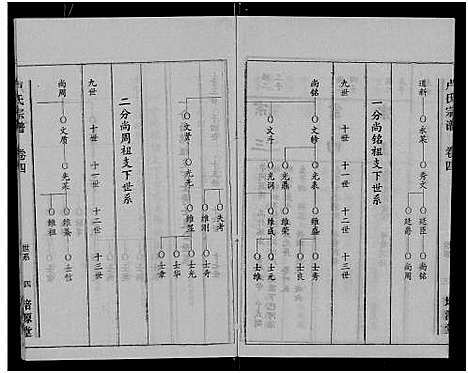 卢氏宗谱 卷四
道新 永荣 秀文 廷臣 尚铭
廷爵 尚周
一分尚铭祖支下世系
九世 十世 十一世 十二世 十三世
尚铭 文修 光表 維盛 士秀
士良
光鼎 維荣
文斗 光润 維成 士元
士維
二分尚周祖支下世系
失考
維刚 士秀
文贤 光元 維显 士光
士华
士章
九世 十世 十一世 十二世 十三世
尚周 文质 光荣 維纂 士恺
維祖
卢氏宗谱 卷四 世系 四 培源堂